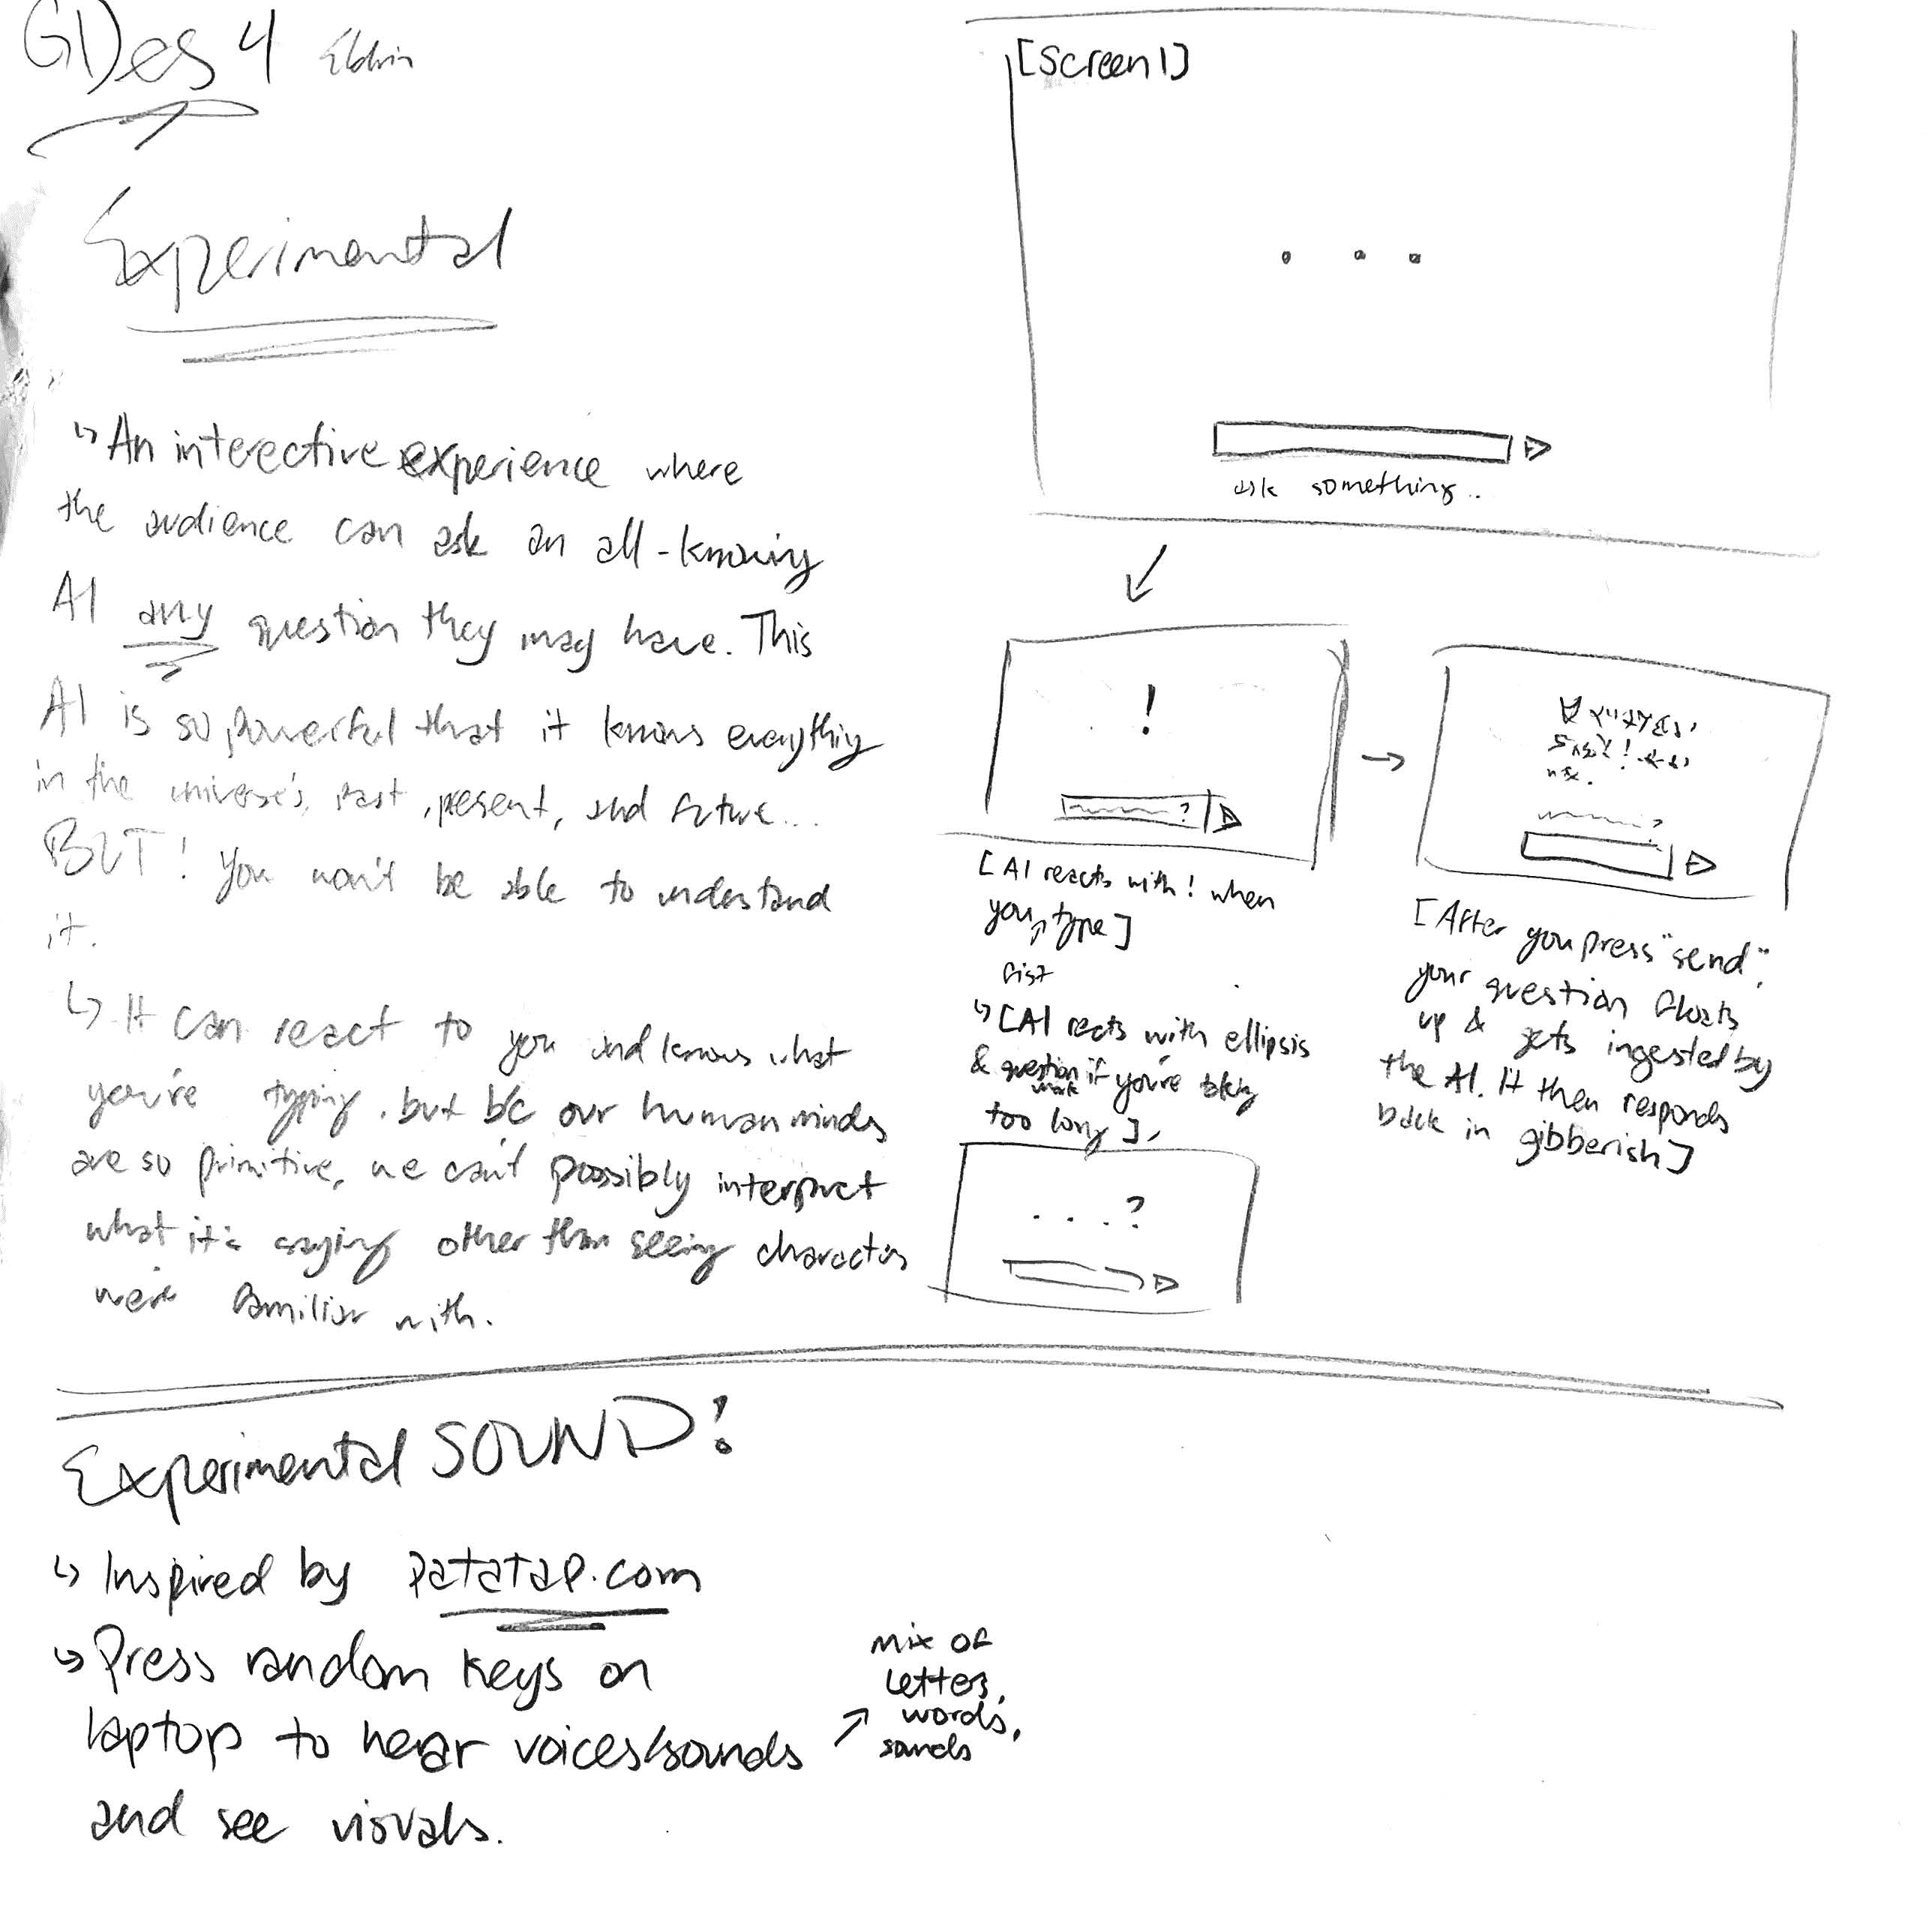 GDes 4
Experimental
↳ An interective experience where
the audience can ask an all-knowing
AI any question they may have. This
AI is so powerful that it knows everything
in the universe's past, present, and future...
BUT! You won't be able to understand
it.
↳ It can react to you and knows what
you're typing, but b/c our human minds
are so primitive, we can't possibly interpret
what it's saying other than seeing characters
we're familiar with.
[Screen 1]
. . .
ask something..
!
?
[AI reacts with ! when
you type]
first
↳ [AI reacts with ellipsis
& question mark if you're taking
too long]
. . . ?
?
[After you press "send",
your question floats
up & gets ingested by
the AI. It then responds
back in gibberish]
Experimental SOUND!
↳ Inspired by patatap.com
↳ Press random keys on
laptop to hear voices/sounds
and see visuals.
mix of
letters,
words,
sounds